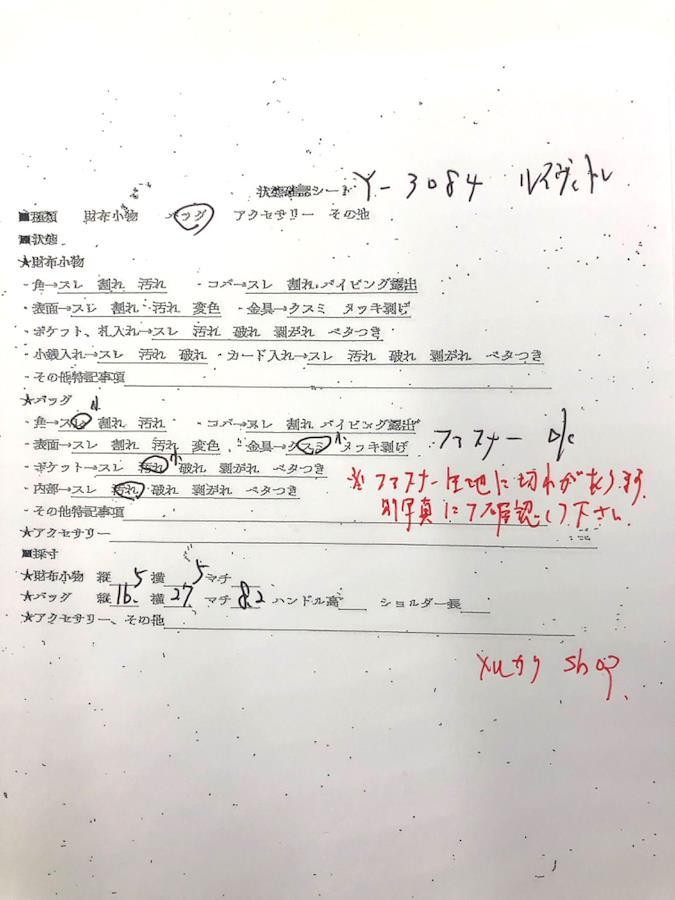 状態確認シート Y-3084 ルイヴィトン
■種類 財布小物 バッグ アクセサリー その他
■状態
★財布小物
・角→スレ 割れ 汚れ ・コバ→スレ 割れ パイピング露出
・表面→スレ 割れ 汚れ 変色 ・金具→クスミ メッキ剥げ
・ポケット、札入れ→スレ 汚れ 破れ 剥がれ ベタつき
・小銭入れ→スレ 汚れ 破れ ・カード入れ→スレ 汚れ 破れ 剥がれ ベタつき
・その他特記事項
★バッグ
・角→スレ 小 割れ 汚れ ・コバ→スレ 割れ パイピング露出
・表面→スレ 割れ 汚れ 変色 ・金具→クスミ 小 メッキ剥げ ファスナー
・ポケット→スレ 汚れ 小 破れ 剥がれ ベタつき
※ファスナー生地に切れがあります
・内部→スレ 汚れ 破れ 剥がれ ベタつき
別写真にて確認して下さい
・その他特記事項
★アクセサリー
■採寸
★財布小物 縦 横 マチ
5 5
★バッグ 縦 16. 横 27 マチ 8.2 ハンドル高 ショルダー長
★アクセサリー、その他
shop